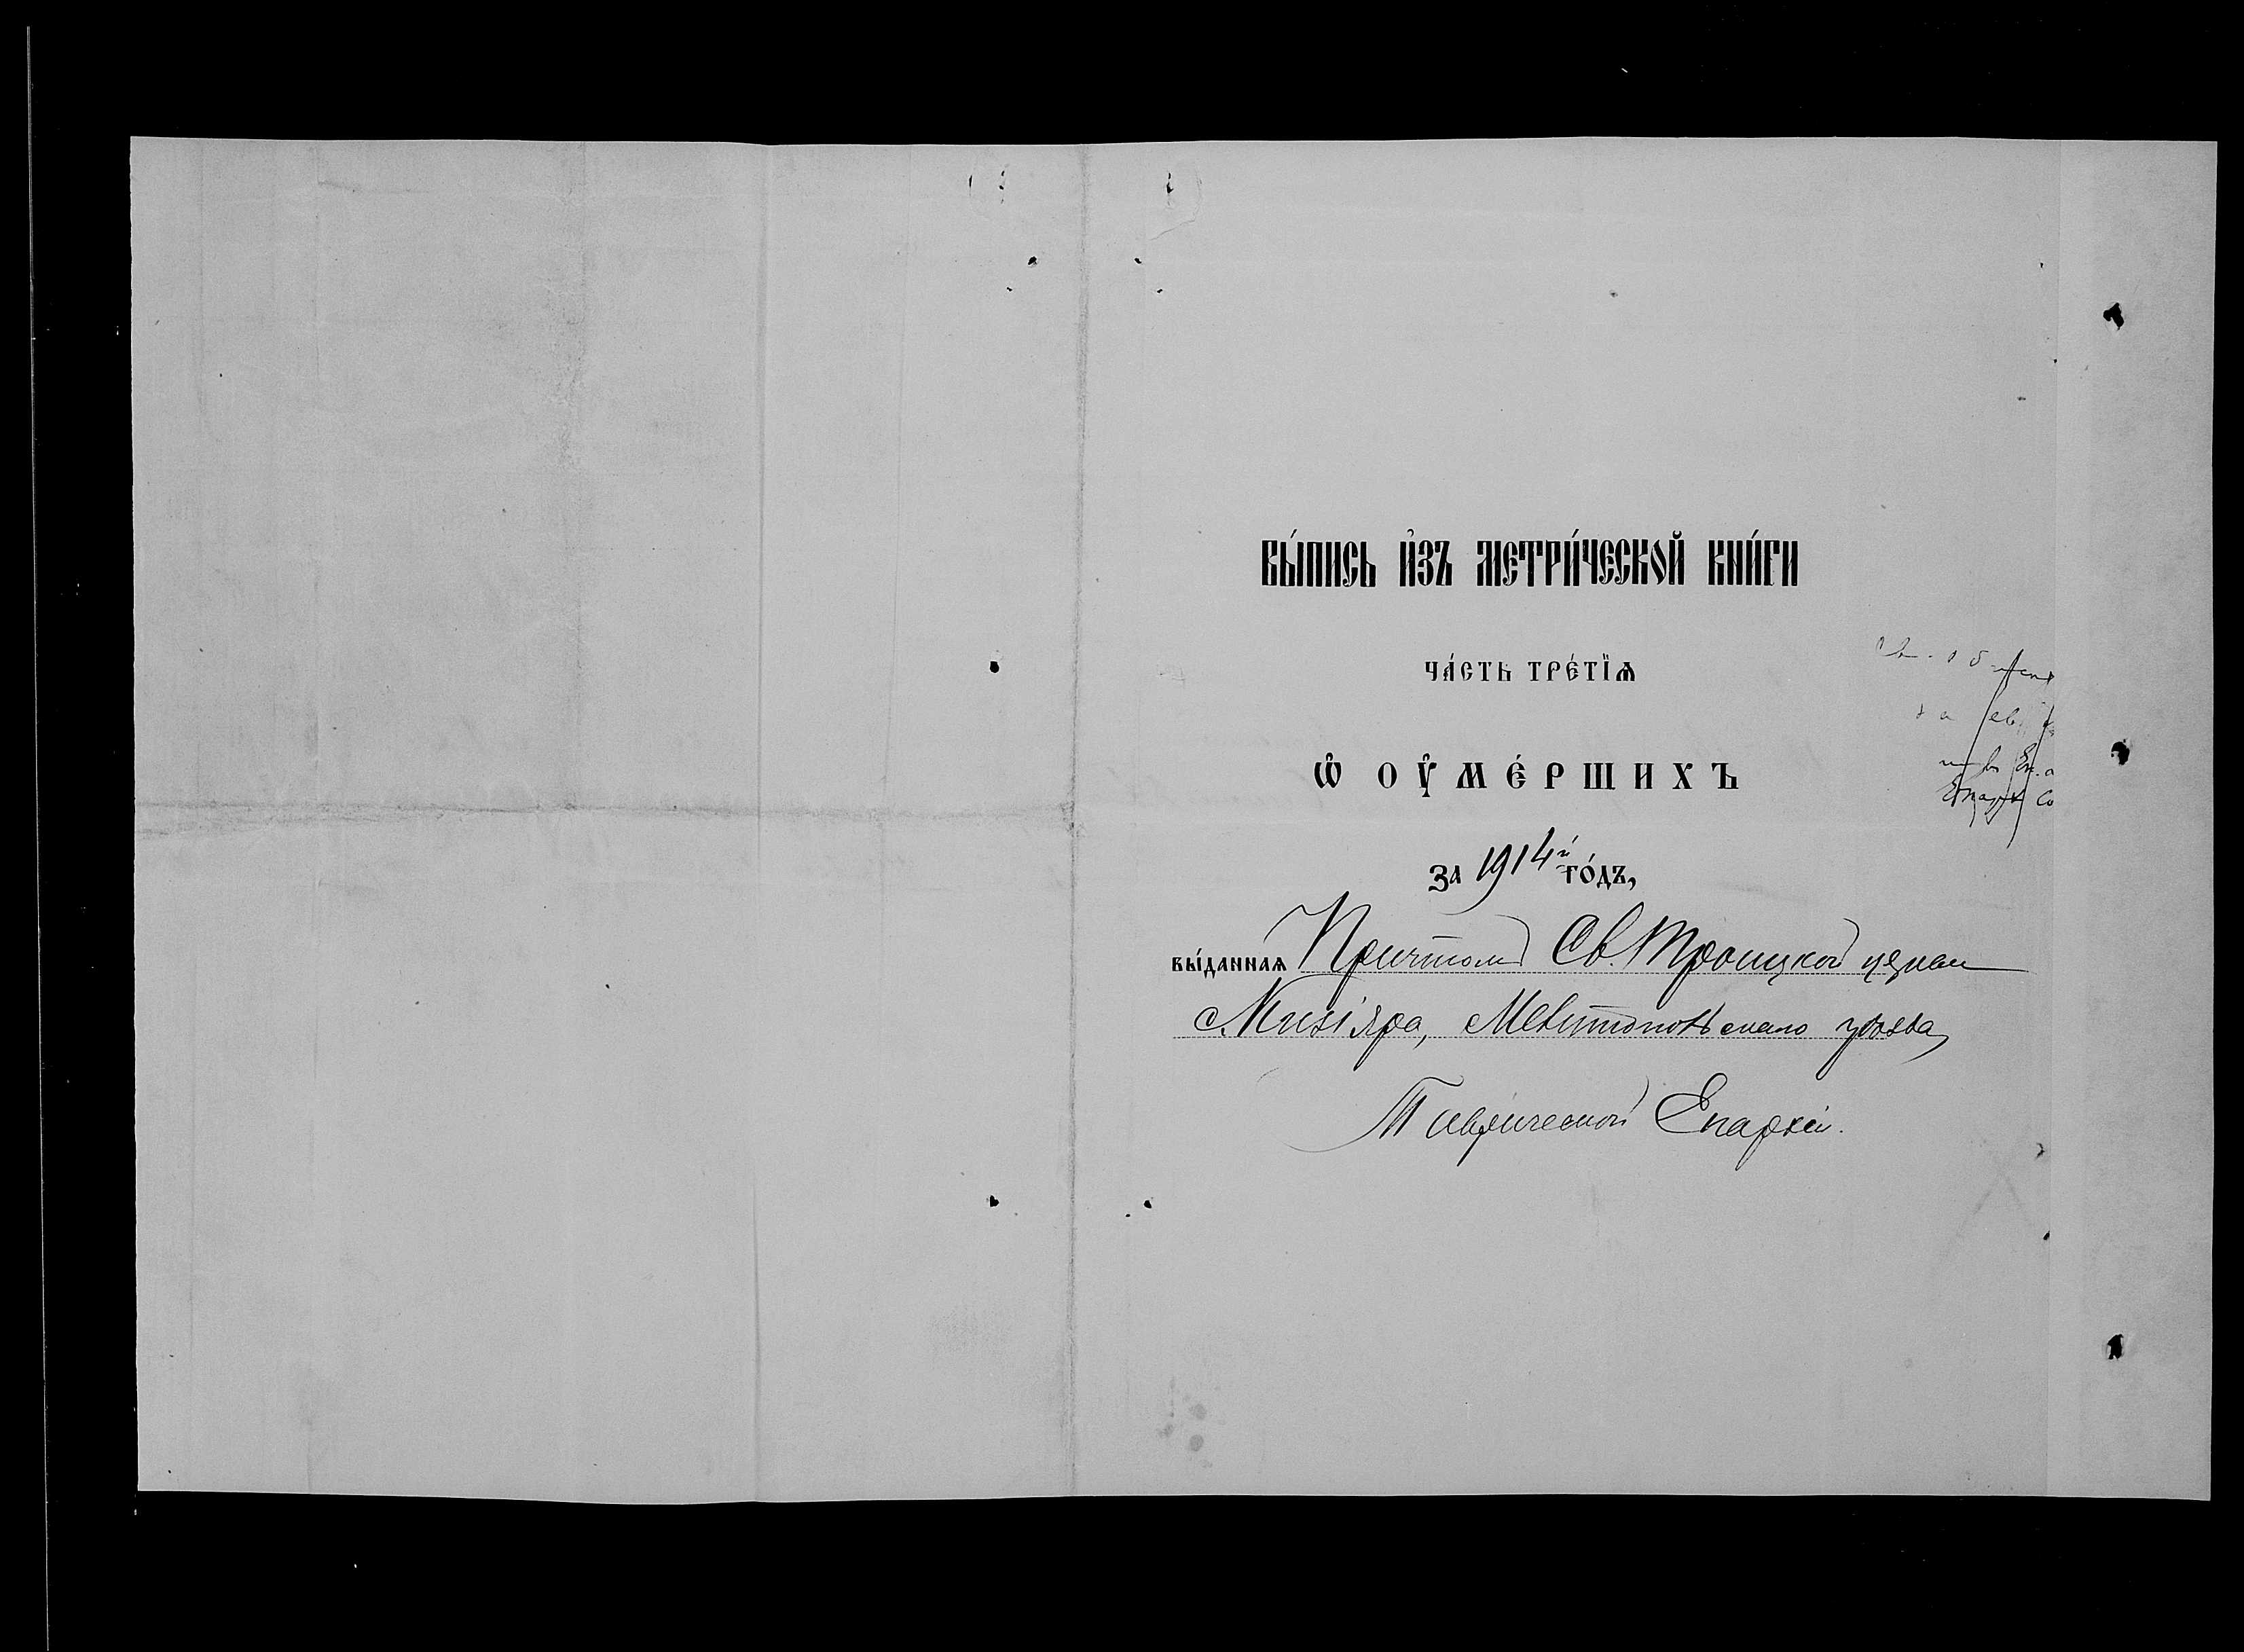 ВЫ́ПИСЬ И҆ЗЪ МЕТРИ́ЧЕСКОЙ КНИ́ГИ
ЧА́СТЬ ТРЕ́ТЇѦ
Ѡ҆ ОУ҆МЕ́РШИХЪ
ЗА 1914й ГО́ДЪ,
ВЫ́ДАННАѦ Причтомъ Св. Троицкой церкви
с. Кизіяра, Мелитопольскаго уѣзда,
Таврической Епархіи.